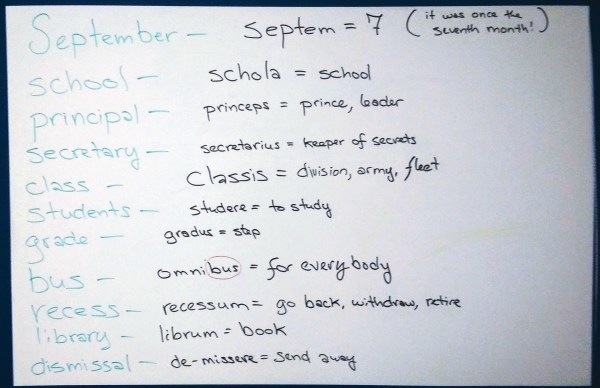 September - septem = 7 (it was once the seventh month!)
school - schola = school
principal - princeps = prince, leader
secretary - secretarius = keeper of secrets
class - classis = division, army, fleet
students - studere = to study
grade - gradus = step
bus - omnibus = for everybody
recess - recessum = go back, withdraw, retire
library - librum = book
dismissal - de-missere = send away